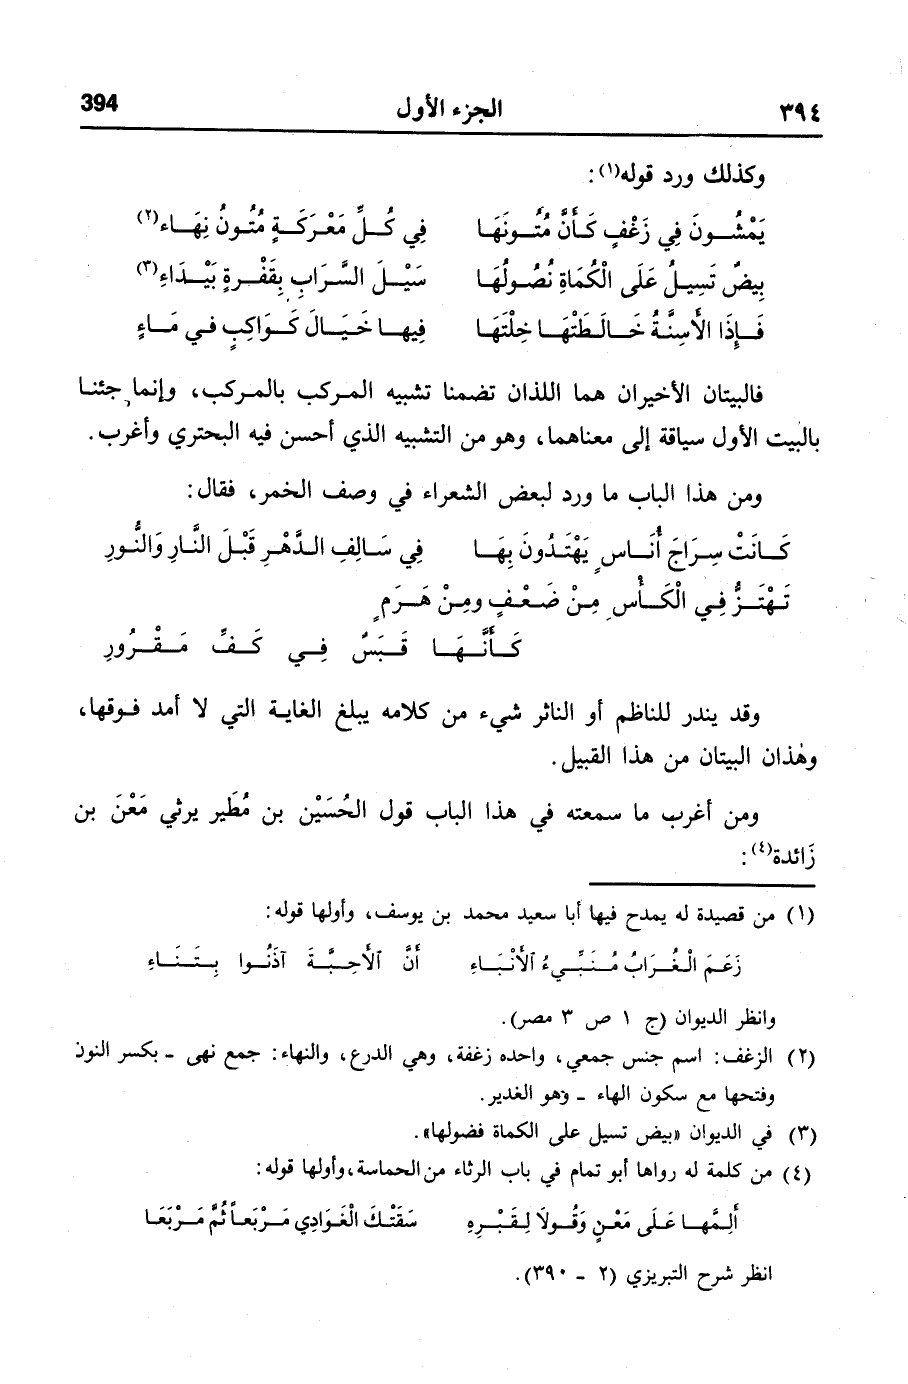 ٣٩٤ الجزء الأول 394
وكذلك ورد قوله(١):
يَمْشُونَ فِي زَغْفٍ كَأَنَّ مُتُونَهَا فِي كُلِّ مَعْرَكَةٍ مُتُونُ نِهَاءِ(٢)
بِيضٌ تَسِيلُ عَلَى الْكُمَاةِ نُصُولُهَا سَيْلَ السَّرَابِ بِقَفْرةٍ بَيْدَاءِ(٣)
فَإِذَا الأَسِنَّةُ خَالَطَتْهَا خِلْتَهَا فِيهَا خَيَالَ كَوَاكِبٍ في مَاءِ
فالبيتان الأخيران هما اللذان تضمنا تشبيه المركب بالمركب، وإنما جئنا
بالبيت الأول سياقة إلى معناهما، وهو من التشبيه الذي أحسن فيه البحتري وأغرب.
ومن هذا الباب ما ورد لبعض الشعراء في وصف الخمر، فقال:
كَانَتْ سِرَاجَ أُنَاسٍ يَهْتَدُونَ بِهَا فِي سَالِفِ الدَّهْرِ قَبْلَ النَّارِ وَالنُّورِ
تَهْتَزُّ فِي الْكَأْسِ مِنْ ضَعْفٍ ومِنْ هَرَمٍ
كَأَنَّهَا قَبَسٌ فِي كَفِّ مَقْرُورِ
وقد يندر للناظم أو الناثر شيء من كلامه يبلغ الغاية التي لا أمد فوقها،
وهٰذان البيتان من هذا القبيل.
ومن أغرب ما سمعته في هذا الباب قول الحُسَيْن بن مُطَير يرثي مَعْنَ بن
زَائدة(٤):
(١) من قصيدة له يمدح فيها أبا سعيد محمد بن يوسف، وأولها قوله:
زَعَمَ الْغُرَابُ مُنَبِّيءُ ٱلأَنْبَاءِ أَنَّ ٱلأَحِبَّةَ آذَنُوا بِتَنَاءِ
وانظر الديوان (ج ١ ص ٣ مصر).
(٢) الزغف: اسم جنس جمعي، واحده زغفة، وهي الدرع، والنهاء: جمع نهى - بكسر النون
وفتحها مع سكون الهاء - وهو الغدير.
(٣) في الديوان «بيض تسيل على الكماة فضولها».
(٤) من كلمة له رواها أبو تمام في باب الرثاء من الحماسة، وأولها قوله:
أَلِمَّهَا عَلَى مَعْنٍ وَقُولَا لِقَبْرِهِ سَقَتْكَ الْغَوَادِي مَرْبَعاً ثُمَّ مَرْبَعَا
انظر شرح التبريزي (٢ - ٣٩٠).